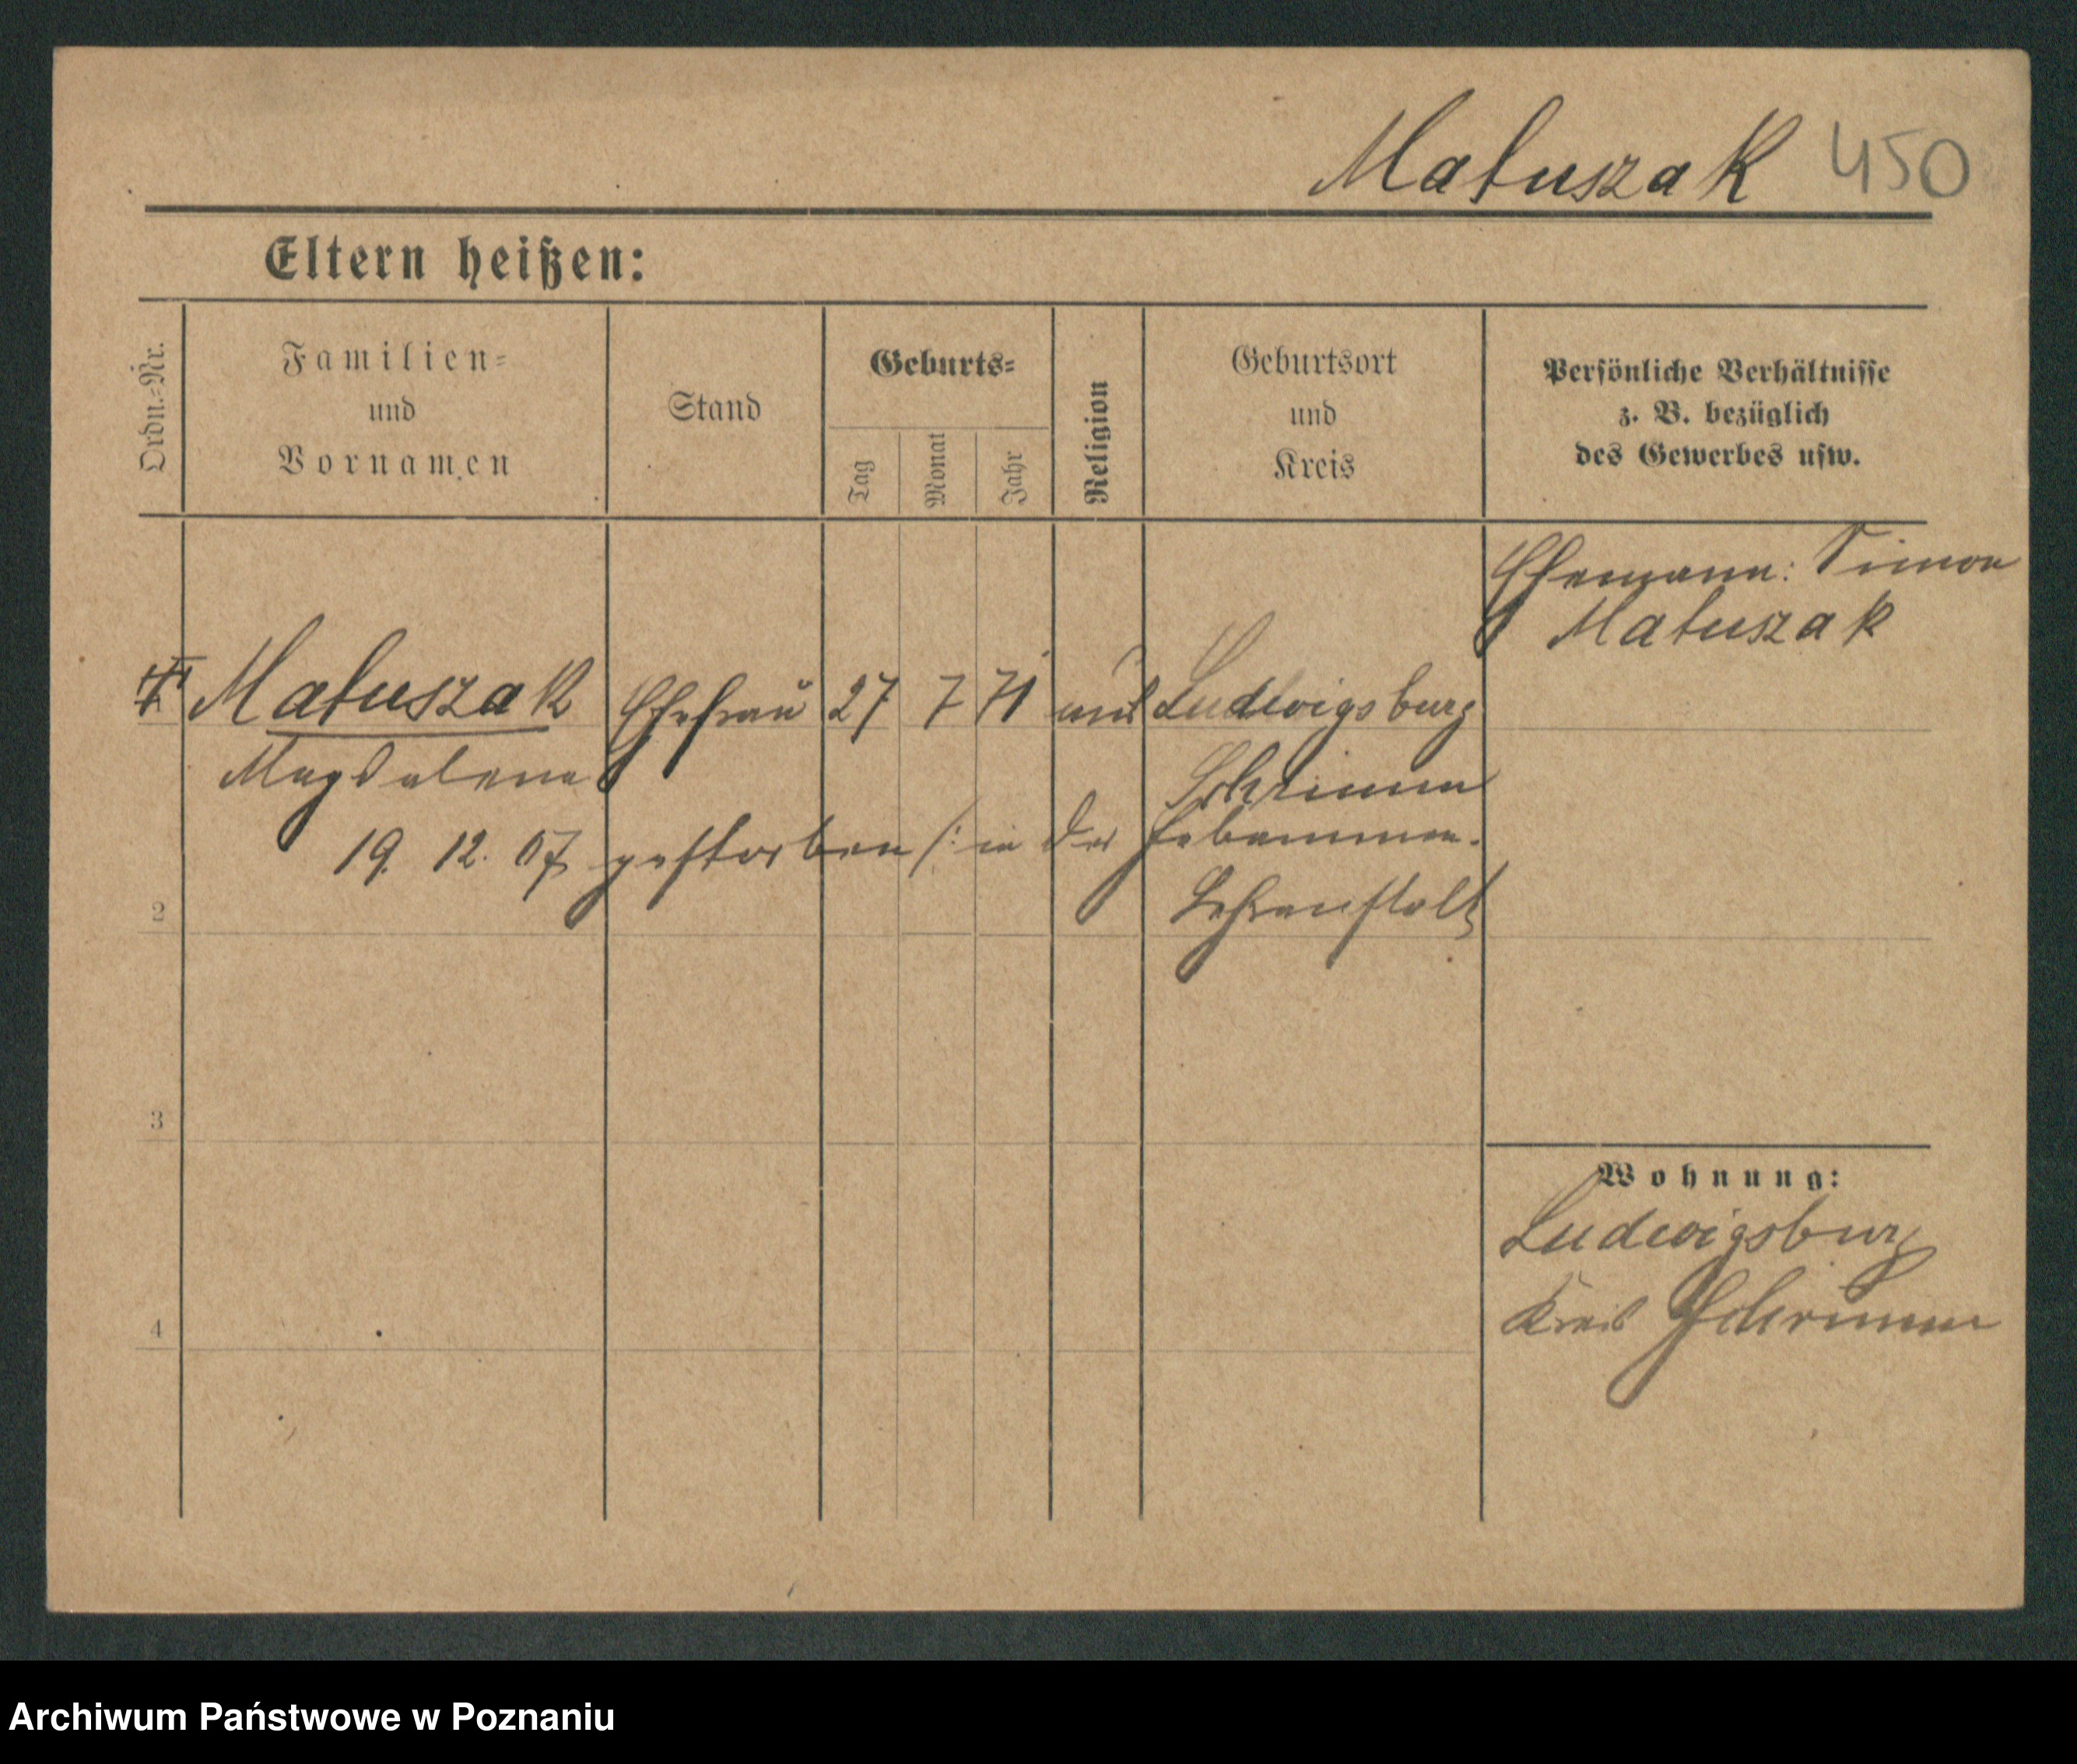 Matuszak 450
Eltern heißen:
Ordn.-Nr.
Familien-
und
Vornamen
Stand
Geburts-
Tag
Monat
Jahr
Religion
Geburtsort
und
Kreis
Persönliche Verhältnisse
z. B. bezüglich
des Gewerbes usw.
Ehemann: Simon
Matuszak
Matuszak Ehefrau 27 7 71 Ludwigsburg
Magdalena Schrimm
19. 12. 07 gestorben /: in der Hebammen-
Lehranstalt
2
3
4
Wohnung:
Ludwigsburg
Kreis Schrimm
Archiwum Państwowe w Poznaniu